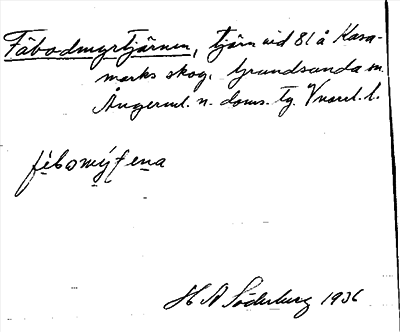 Fäbodmyrtjärnen, tjärn vid 81 å Kasa-
marks skog, Grundsunda sn.
Ångerml. n. doms. tg. Vnorrl. l.
H A Söderberg 1936